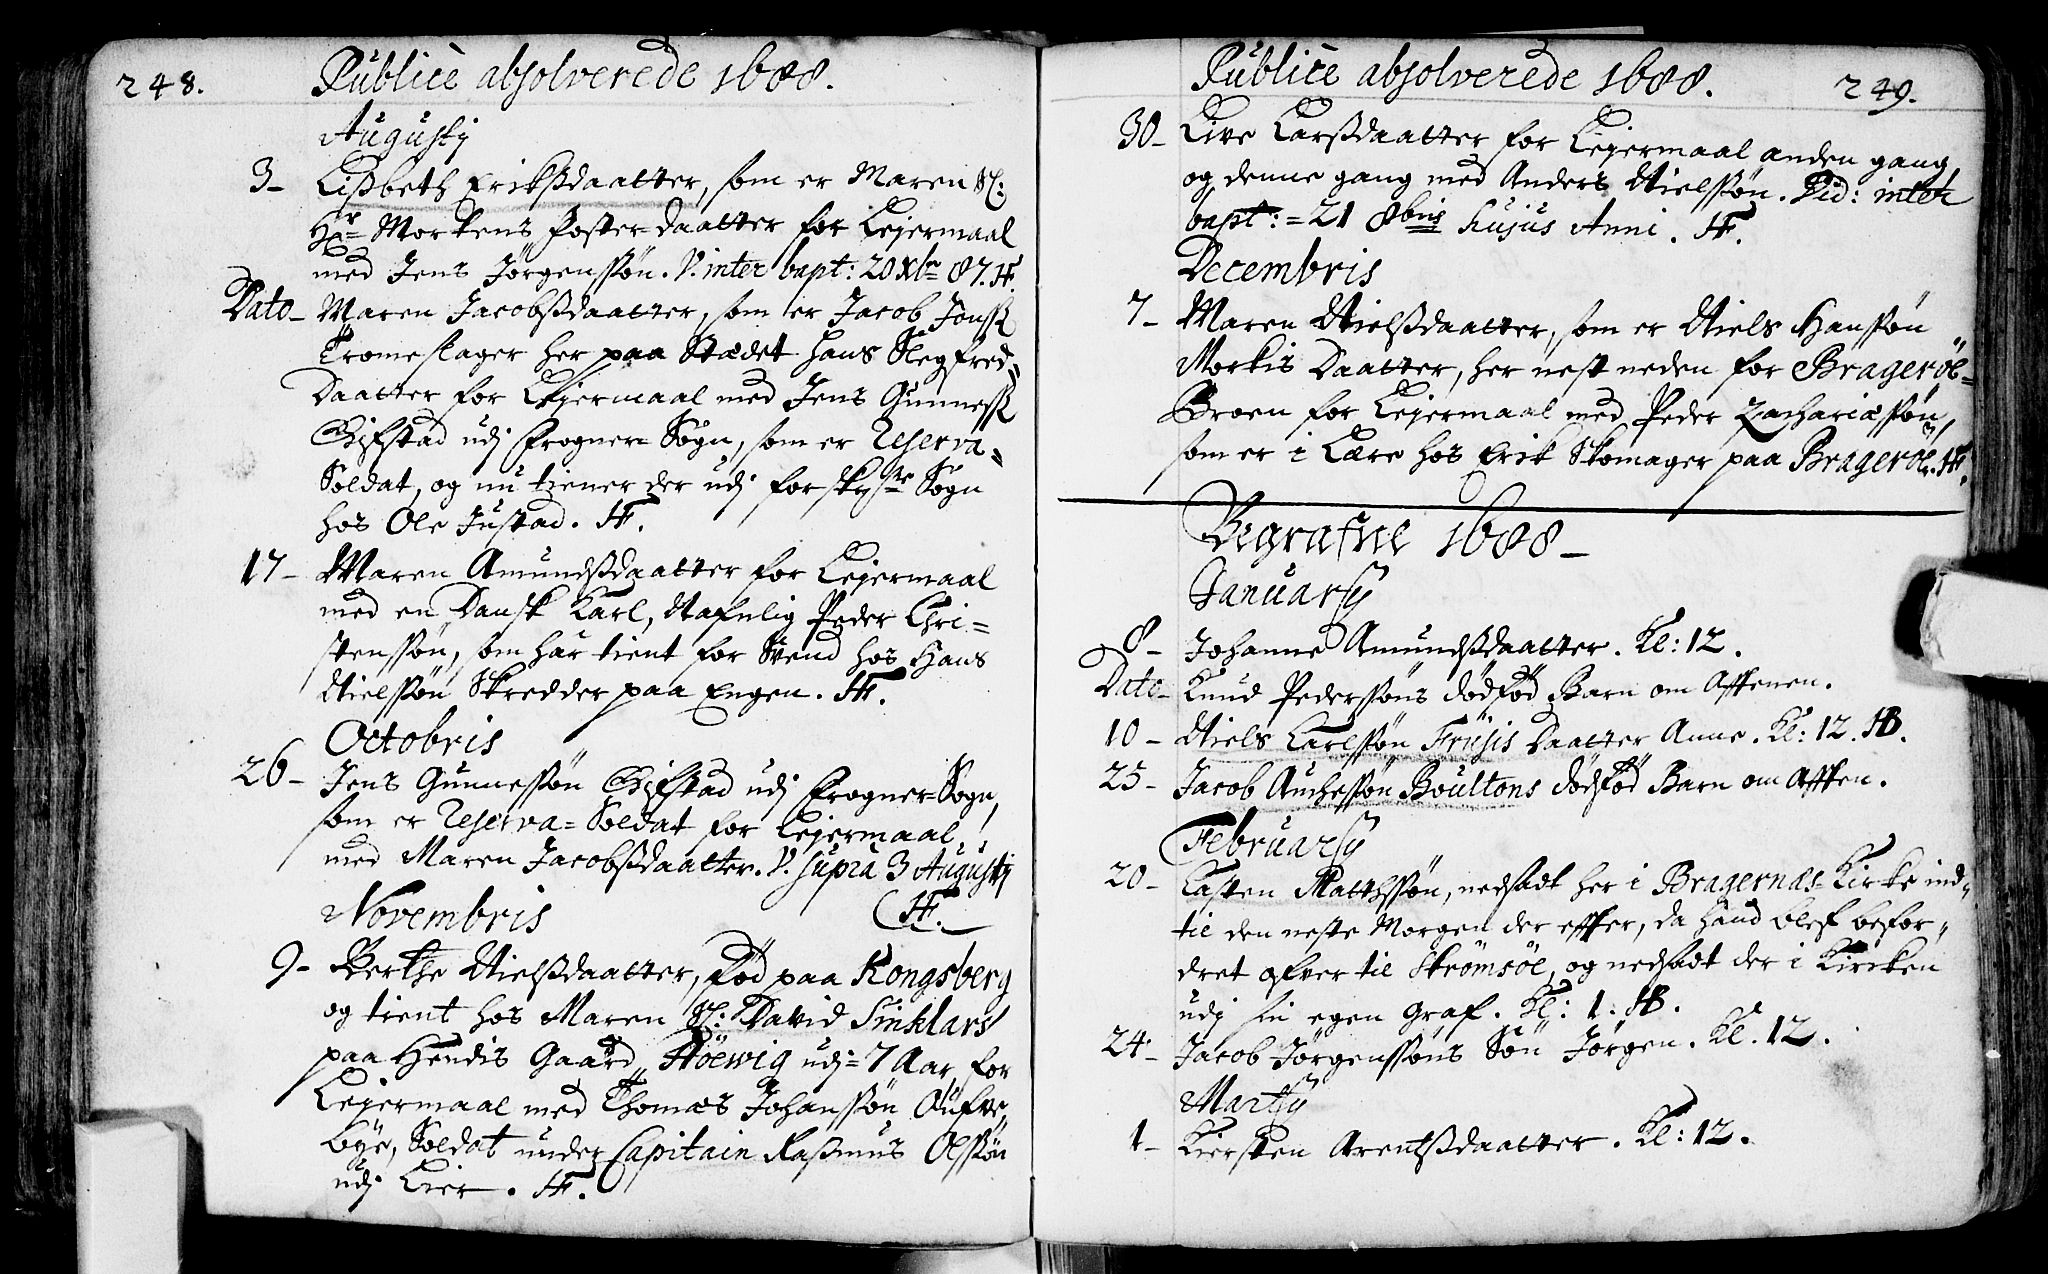 248. Publicè absolverede 1688.
Augusti
3- Lißbeth Erikßdaatter, som er Maren Sl:
Hr Mortens Foster-daatter for Lejermaal
med Jens Jörgenssön. V. inter bapt: 20 Xbr 87. H.
Dato- Maren Jacobsßdaatter, som er Jacob Jonß
Tromeslager her paa Stædet hans Slegfred-
Daatter for Lejermaal med Jens Gunnesß
Gifstad udj Frogner-Sogn, som er reserva-
Soldat, og nu tiener der udj forskrne Sogn
hos Ole Justad. H.
17- Maren Amundsßdaatter for Lejermaal
med en Dansk Karl, Nafnlig Peder Chri-
stenssön, som har tient for Svend hos Hans
Nielssön Skredder paa Engen. H.
Octobris
26- Jens Gunnessön Gifstad udj Frogner-Sogn,
som er reserva-Soldat for Lejermaal
med Maren Jacobsßdaatter. V. supra 3 Augusti
H.
Novembris
9- Berthe Nielsßdaatter, föd paa Kongsberg
og tient hos Maren Sl: David Sinklars
paa Hendis Gaard Höewig udj 7 Aar, for
Lejermaal med Thomæs Johanssön Öüfre
bye, Soldat under Capitain Raßmus Olssön
udj Lier. H.
Publicè absolverede 1688. 249.
30- Live Larsßdaatter for Lejermaal anden gang,
og denne gang med Anders Nielssön. Vid: inter
bapt: = 21 8bris hujus Anni. H.
Decembris
7- Maren Nielsßdaatter, som er Niels Hanssön
Morkis Daatter, her nest neden for Brageröe-
Broen for Lejermaal med Peder Zachariæssön,
som er i Lære hos Erik Skomager paa Brageröe. H.
Begrafne 1688-
Januarij
8- Johanne Amundsßdaatter. Kl: 12.
Dato- Knud Pederssöns dödföd Barn om Afftenen.
10- Niels Carlssön Früsis Daatter Anne. Kl: 12. HB.
25- Jacob Auchessön Boultons dödföd Barn om Afften.
Februarij
20- Casten Matthssön, nedsadt her i Bragernæs-Kirke ind-
til den neste Morgen der effter, da hand blef befor-
dret ofver til Strömsöe, og nedsadt der i Kircken
udj sin egen Graf. Kl: 1. HB.
24- Jacob Jörgenssöns Sön Jörgen. Kl. 12.
Martij
1- Kiersten Arentsßdaatter. Kl: 12.